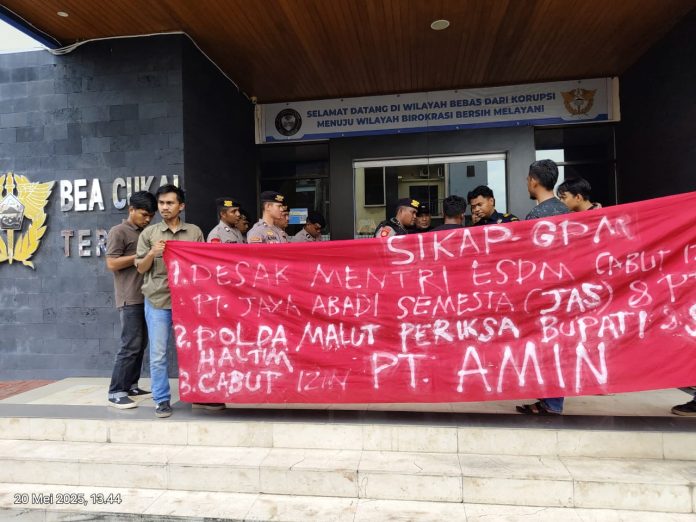 SELAMAT DATANG DI WILAYAH BEBAS DARI KORUPSI
MENUJU WILAYAH BIROKRASI BERSIH MELAYANI
BEA CUKAI
TER
SIKAP-GPM
1. DESAK MENTRI ESDM CABUT IZ
PT. JAYA ABADI SEMESTA (JAS) & PT
2. POLDA MALUT PERIKSA BUPATI &
HALTIM
3. CABUT IZIN PT. AMIN
20 Mei 2025, 13.44